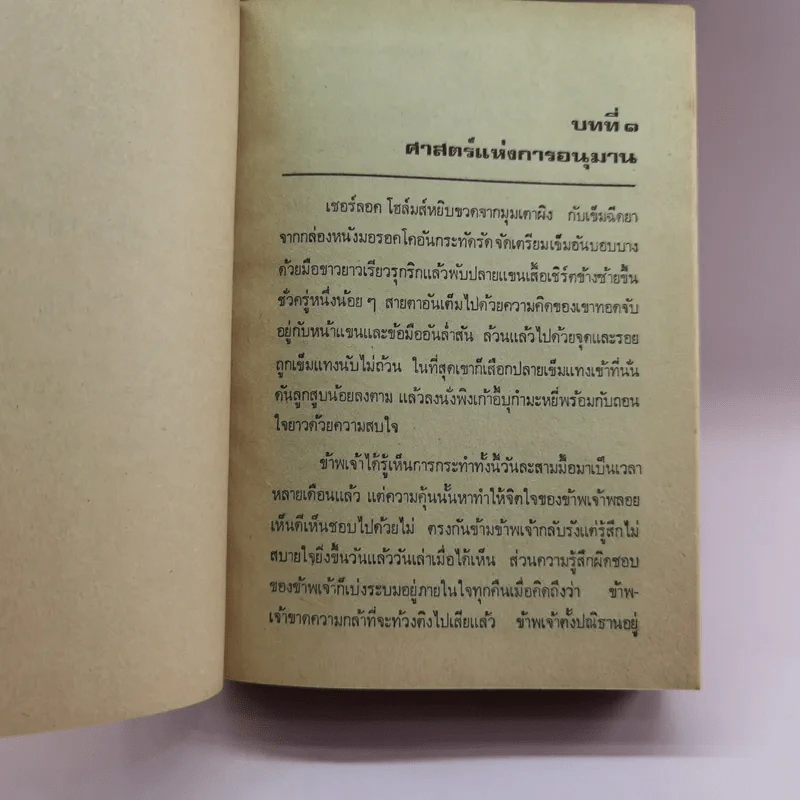 บทที่ ๑
ศาสตร์แห่งการอนุมาน
เชอร์ลอค โฮล์มส์หยิบขวดจากมุมเตาผิง กับเข็มฉีดยา
จากกล่องหนังมอรอคโคอันกระทัดรัด จัดเตรียมเข็มอันบอบบาง
ด้วยมือขาวยาวเรียวรุกริกแล้วพับปลายแขนเสื้อเชิร์ตข้างซ้ายขึ้น
ชั่วครู่หนึ่งน้อย ๆ สายตาอันเต็มไปด้วยความคิดของเขาทอดจับ
อยู่กับหน้าแขนและข้อมืออันล่ำสัน ล้วนแล้วไปด้วยจุดและรอย
ถูกเข็มแทงนับไม่ถ้วน ในที่สุดเขาก็เสือกปลายเข็มแทงเข้าที่นั่น
ดันลูกสูบน้อยลงตาม แล้วลงนั่งพิงเก้าอี้บุกำมะหยี่พร้อมกับถอน
ใจยาวด้วยความสบใจ
ข้าพเจ้าได้รู้เห็นการกระทำทั้งนี้วันละสามมื้อมาเป็นเวลา
หลายเดือนแล้ว แต่ความคุ้นนั้นหาทำให้จิตใจของข้าพเจ้าพลอย
เห็นดีเห็นชอบไปด้วยไม่ ตรงกันข้ามข้าพเจ้ากลับรังแต่รู้สึกไม่
สบายใจยิ่งขึ้นวันแล้ววันเล่าเมื่อได้เห็น ส่วนความรู้สึกผิดชอบ
ของข้าพเจ้าก็เบ่งระบมอยู่ภายในใจทุกคืนเมื่อคิดถึงว่า ข้าพ-
เจ้าขาดความกล้าที่จะท้วงติงไปเสียแล้ว ข้าพเจ้าตั้งปณิธานอยู่